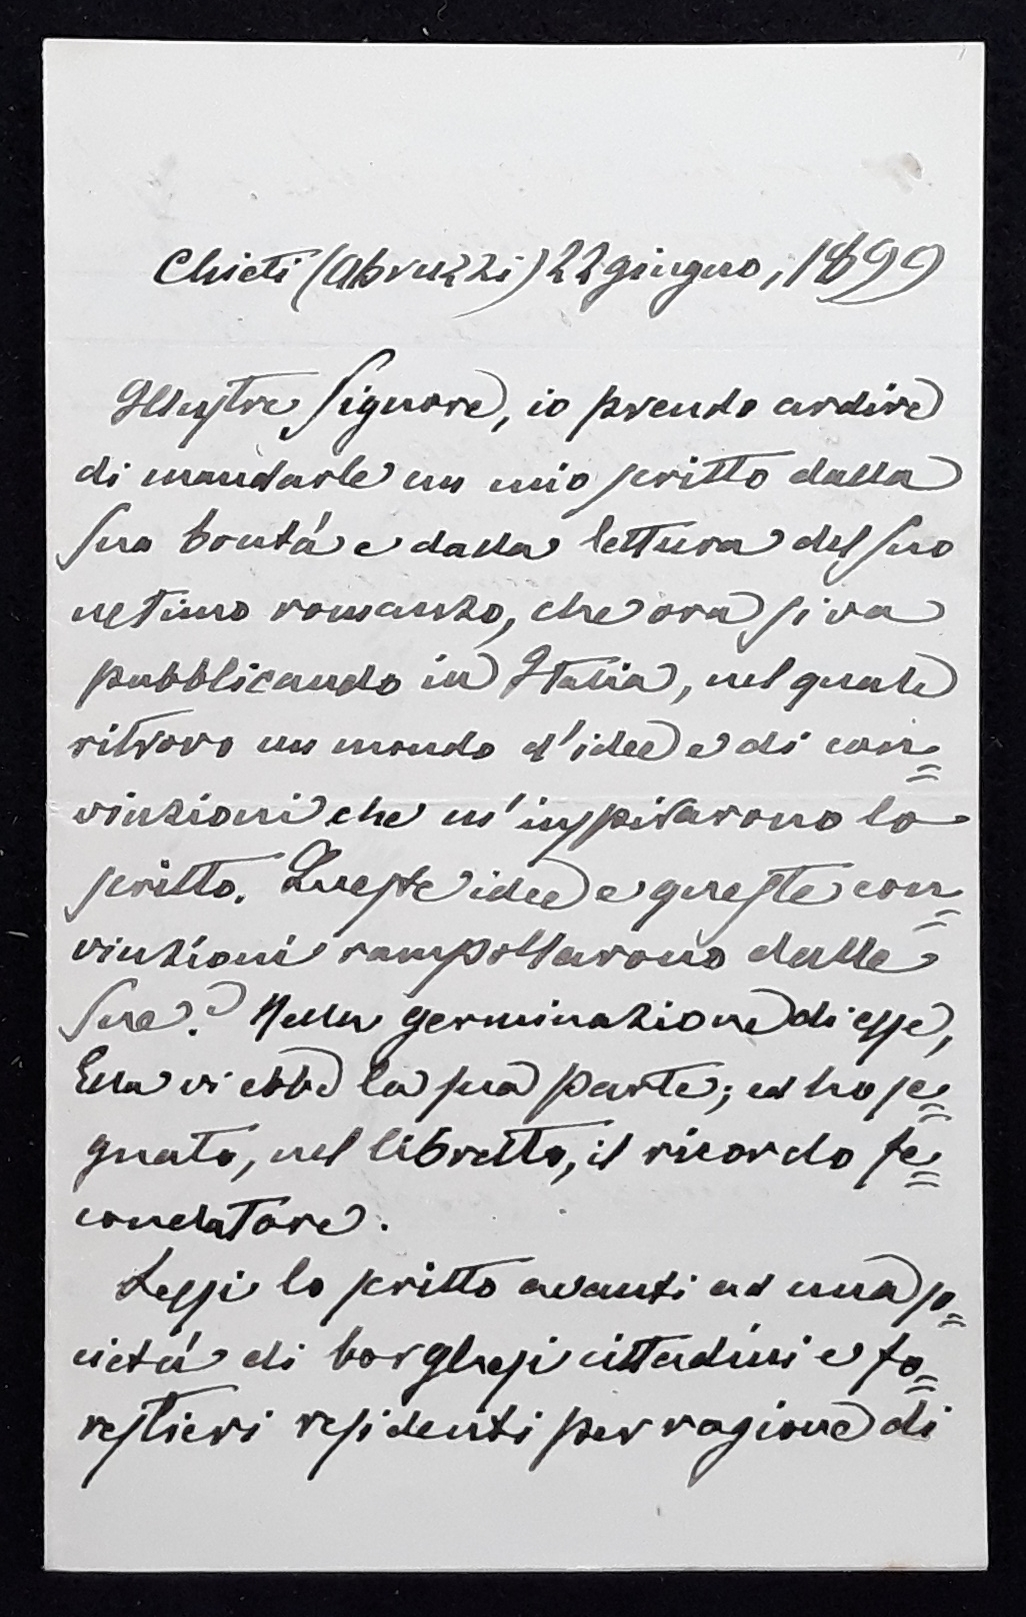 Chieti (Abruzzi) 22 giugno, 1899
Illustre Signore, io prendo ardire
di mandarle un mio scritto dalla
Sua bontá e dalla lettura del Suo
ultimo romanzo, che ora si va
pubblicando in Italia, nel quale
ritrovo un mondo d'idee e di con=
vinzioni che m'inspirarono lo
scritto. Queste idee e queste con=
vinzioni rampollarono dalle
Sue? Nella germinazione di esse,
Ella vi ebbe la sua parte; ed ho se=
gnato, nel libretto, il ricordo fe=
condatore.
Lessi lo scritto avanti ad una so=
cietá di borghesi cittadini e fo=
restieri residenti per ragione di